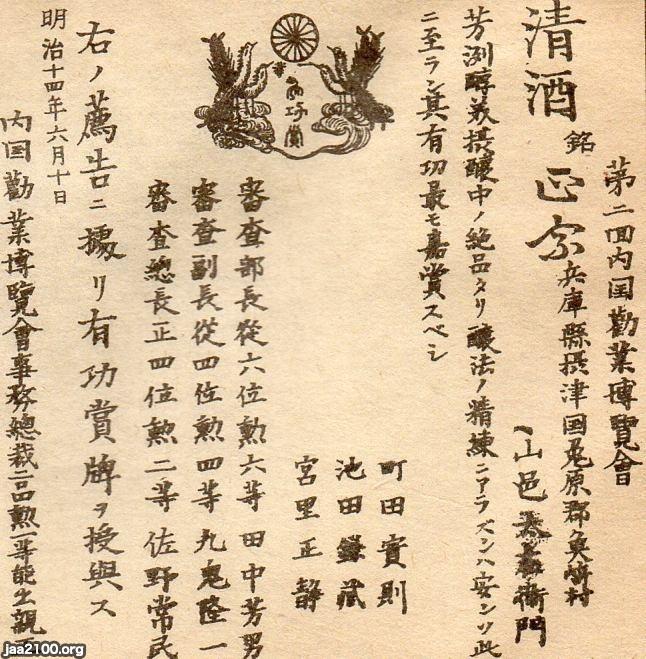 第二回内国勧業博覧會
清酒 銘 正宗 兵庫縣摂津国菟原郡魚崎村
山邑太左衛門
芳洌醇美摂醸中ノ絶品タリ醸法ノ精練ニアラズンハ安ンソ此
ニ至ラン其有功最モ嘉賞スベシ
有功賞
町田實則
池田謙蔵
宮里正静
審査部長從六位勲六等田中芳男
審査副長從四位勲四等九鬼隆一
審査總長正四位勲二等佐野常民
右ノ薦告ニ據リ有功賞牌ヲ授與ス
明治十四年六月十日
内国勧業博覧會事務總裁二品勲一等能久親王
jaa2100.org